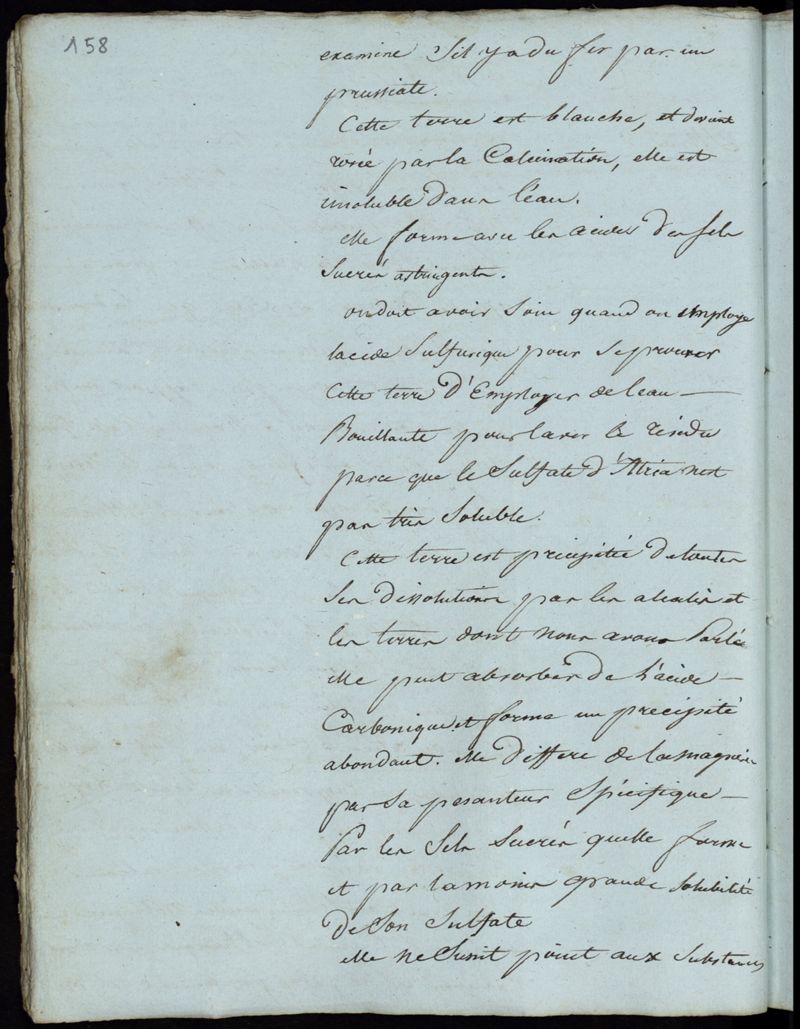 158
examine S'il y a du fer par un
prussiate.
Cette terre est blanche, et devient
rosée par la Calcination, elle est
insoluble dans l'eau.
elle forme avec les acides des sels
Sucrés astringents.
on doit avoir Soin quand on employe
lacide Sulfurique pour se procurer
Cette terre d'Employer de leau —
Bouillante pour laver le résidu
parce que le Sulfate d'Itria nest
pas très Soluble.
Cette terre est précipitée de toutes
Ses dissolutions par les alcalis et
les terres dont nous avons Parlé
elle peut absorber de l'acide —
Carbonique et forme un precipité
abondant. elle differe de la magnésie
par Sa pesanteur Spécifique —
Par les Sels Sucrés quelle forme
et par la moins grande solubilité
de Son Sulfate
elle ne Sunit point aux Substances